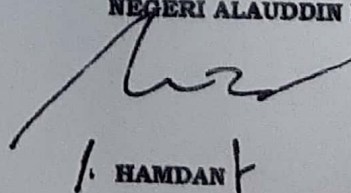 NEGERI ALAUDDIN
HAMDAN